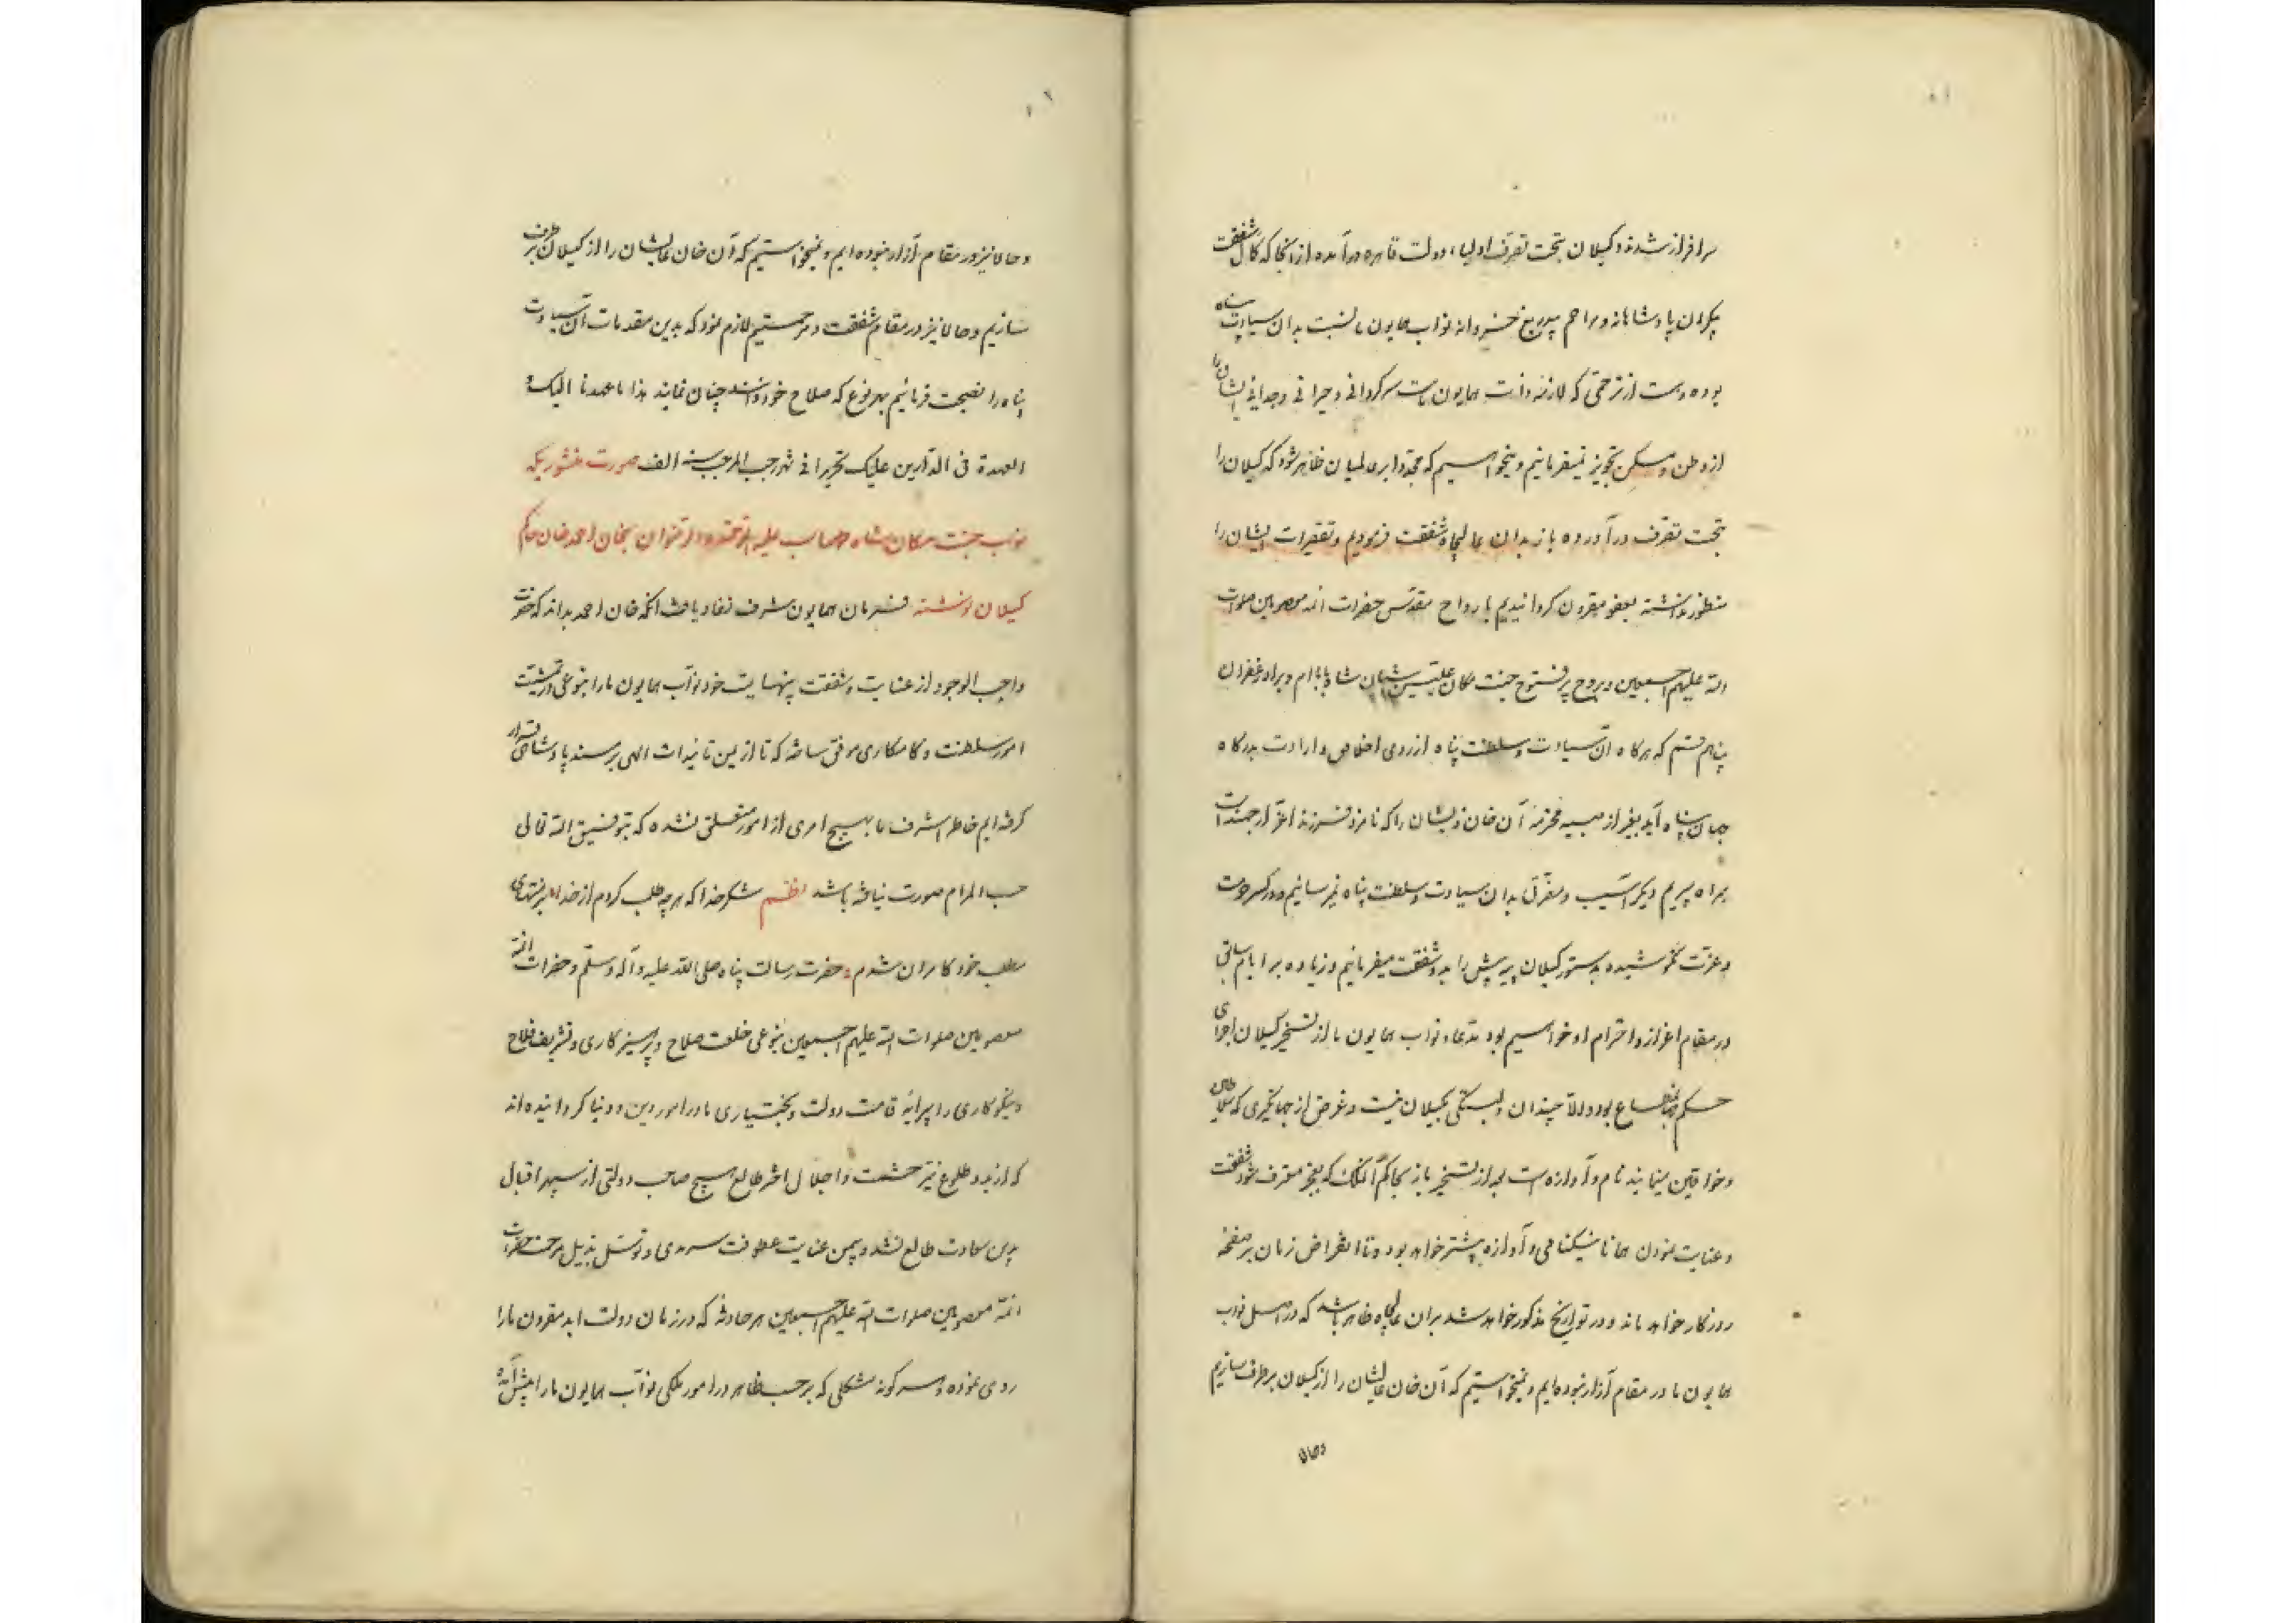 سرافراز شدند و کیلان بتحت تصرف اولیاء دولت قاهره درآمده از آنجا که کمال شفقت
بیکران پادشاهانه و مراحم بیدریغ خسروانه نواب همایون ما نسبت بدان سیادت پناه
بوده و هست از ترحمی که لازمه ذات همایون ماست سرکردانی و حیرانی و جدائی ایشان را
از وطن و مسکن تجویز نمیفرمائیم و میخواهیم که مجددا بر عالمیان ظاهر شود که کیلان را
بتحت تصرف درآورده باز بدان عالیجاه شفقت فرمودیم و تقصیرات ایشان را
منظور نداشته بعفو مقرون کردانیدیم بارواح مقدس حضرات ائمه معصومین صلوات
الله علیهم اجمعین و بروح پرفتوح جنت مکان علیین آشیان شاه بابام و برادر غفران
پناهم قسم که هرکاه آن سیادت و سلطنت پناه از روی اخلاص و ارادت بدرکاه
جهان پناه آید بغیر از صبیه محترمه آن خان ذیشان را که نامزد فرزند اعز ارجمند است
همراه ببریم دیکر آسیب و مضرتی بدان سیادت و سلطنت پناه نمیرسانیم و در کسر حرمت
و عزت نکوشیده بدستور کیلان بیه پیش را بدو شفقت میفرمائیم و زیاده بر ایام سابق
در مقام اعزاز و احترام او خواهیم بود مدعاء نواب همایون ما از تسخیر کیلان اجرای
حکم جهانمطاع بود والا چندان دلبستکی بکیلان نیست و غرض از جهانکیری که سلاطین
و خواقین مینمایند نام و آوازه است بعد از تسخیر باز بحاکم آن ملک که بعجز معترف شود شفقت
و عنایت نمودن همانا نیکنامی و آوازه بیشتر خواهد بود و تا انقراض زمان بر صفحه
روزکار خواهد ماند و در تواریخ مذکور خواهد شد بر آن عالیجاه ظاهر باشد که در اصل نواب
همایون ما در مقام آزار نبوده‌ایم و نمیخواستیم که آن خان عالیشان را از کیلان برطرف سازیم
و حالا
و حالا نیز در مقام آزار نبوده‌ایم و نمیخواستیم که آن خان عالیشان را از کیلان برطرف
سازیم و حالا نیز در مقام شفقت و مرحمتیم لازم نمود که بدین مقدمات آن سیادت
پناه را نصیحت فرمائیم بهر نوع که صلاح خود دانند چنان نمایند هذا ما عهدنا الیک و
العهدة فی الدارین علیک تحریرا فی شهر رجب المرجب سنه الف صورت منشوریکه
نواب جنت مکان شاه طهماسب علیه الرحمة و الرضوان بخان احمد خان حاکم
کیلان نوشته فرمان همایون شرف نفاذ یافت آنکه خان احمد بداند که حضرت
واجب الوجود از عنایت و شفقت بینهایت خود نواب همایون ما را بنوعی در تمشیت
امور سلطنت و کامکاری موفق ساخته که تا از یمن تائیدات الهی بر مسند پادشاهی قرار
کرفته‌ایم خاطر اشرف ما بهیچ امری از امور متعلق نشده که بتوفیق الله تعالی
حسب المرام صورت نیافته باشد نظم شکر خدا که هرچه طلب کردم از خدا بر منتهای
مطلب خود کامران شدم حضرت رسالت پناه صلی الله علیه و آله و سلم و حضرات ائمه
معصومین صلوات الله علیهم اجمعین بنوعی خلعت صلاح و پرهیزکاری و تشریف فلاح
و نیکوکاری را پیرایه قامت دولت و بختیاری ما در امور دین و دنیا کردانیده‌اند
که از بدو طلوع نیر حشمت و اجلال اختر طالع هیچ صاحب دولتی از سپهر اقبال
بدین سعادت طالع نشد و بیمن عنایت عطوفت سرمدی و توسل بذیل مرحمت حضرات
ائمه معصومین صلوات الله علیهم اجمعین هر حادثه که در زمان دولت ابد مقرون ما را
روی نموده و هر کونه مشکلی که بر حسب ظاهر در امور ملکی نواب همایون ما را پیش آمده